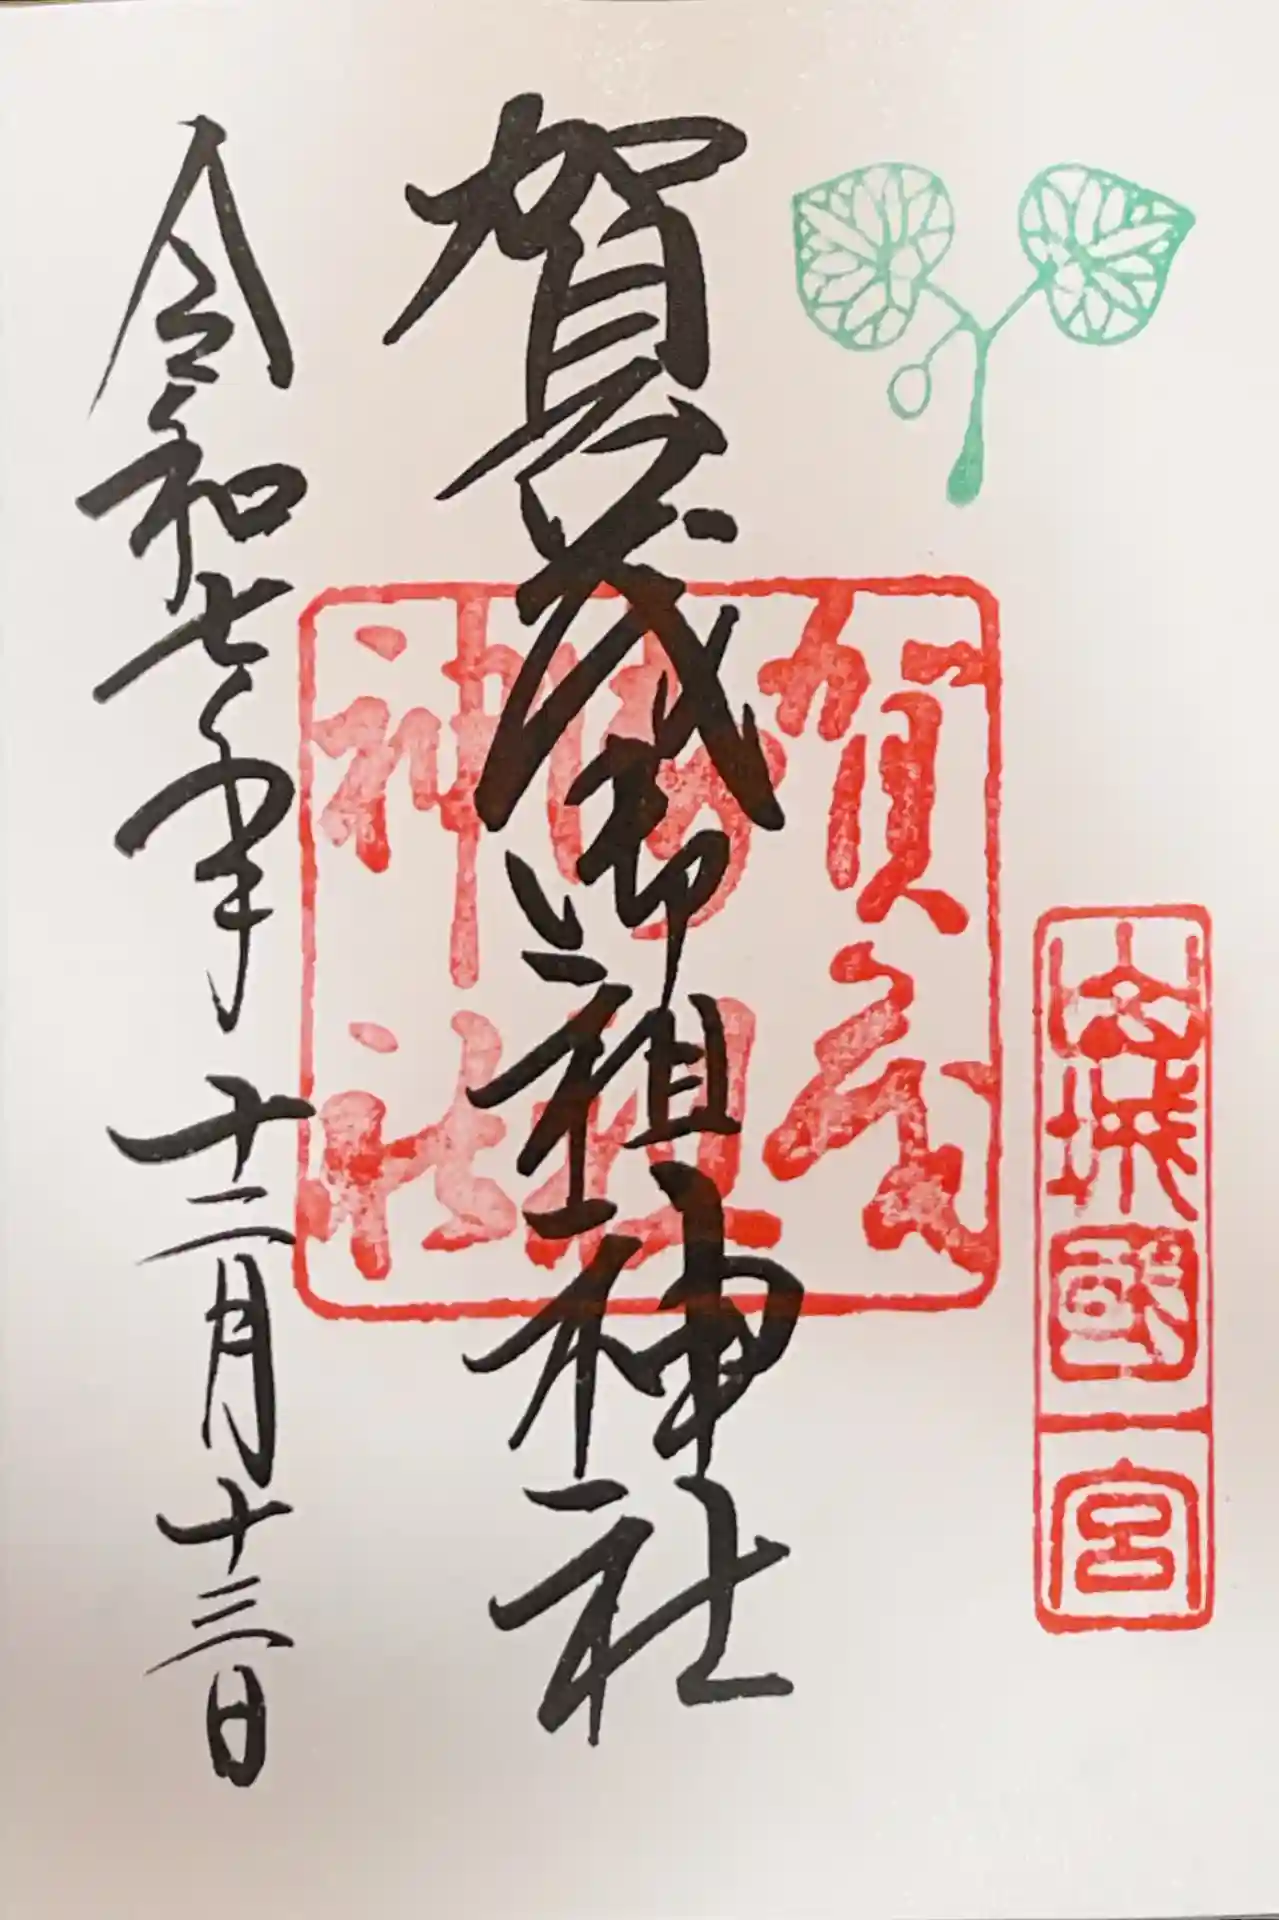 山城國一宮
賀茂御祖神社
賀茂御祖神社
令和七年十二月十三日